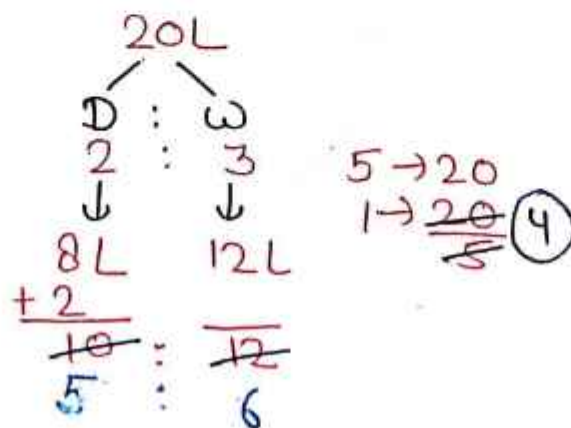 20L
D : W
2 : 3
8L 12L
+2
10 : 12
5 : 6
5→20
1→20/5 4